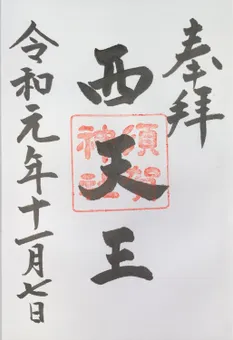 奉拝
西天王
須賀
神社
令和元年十一月七日